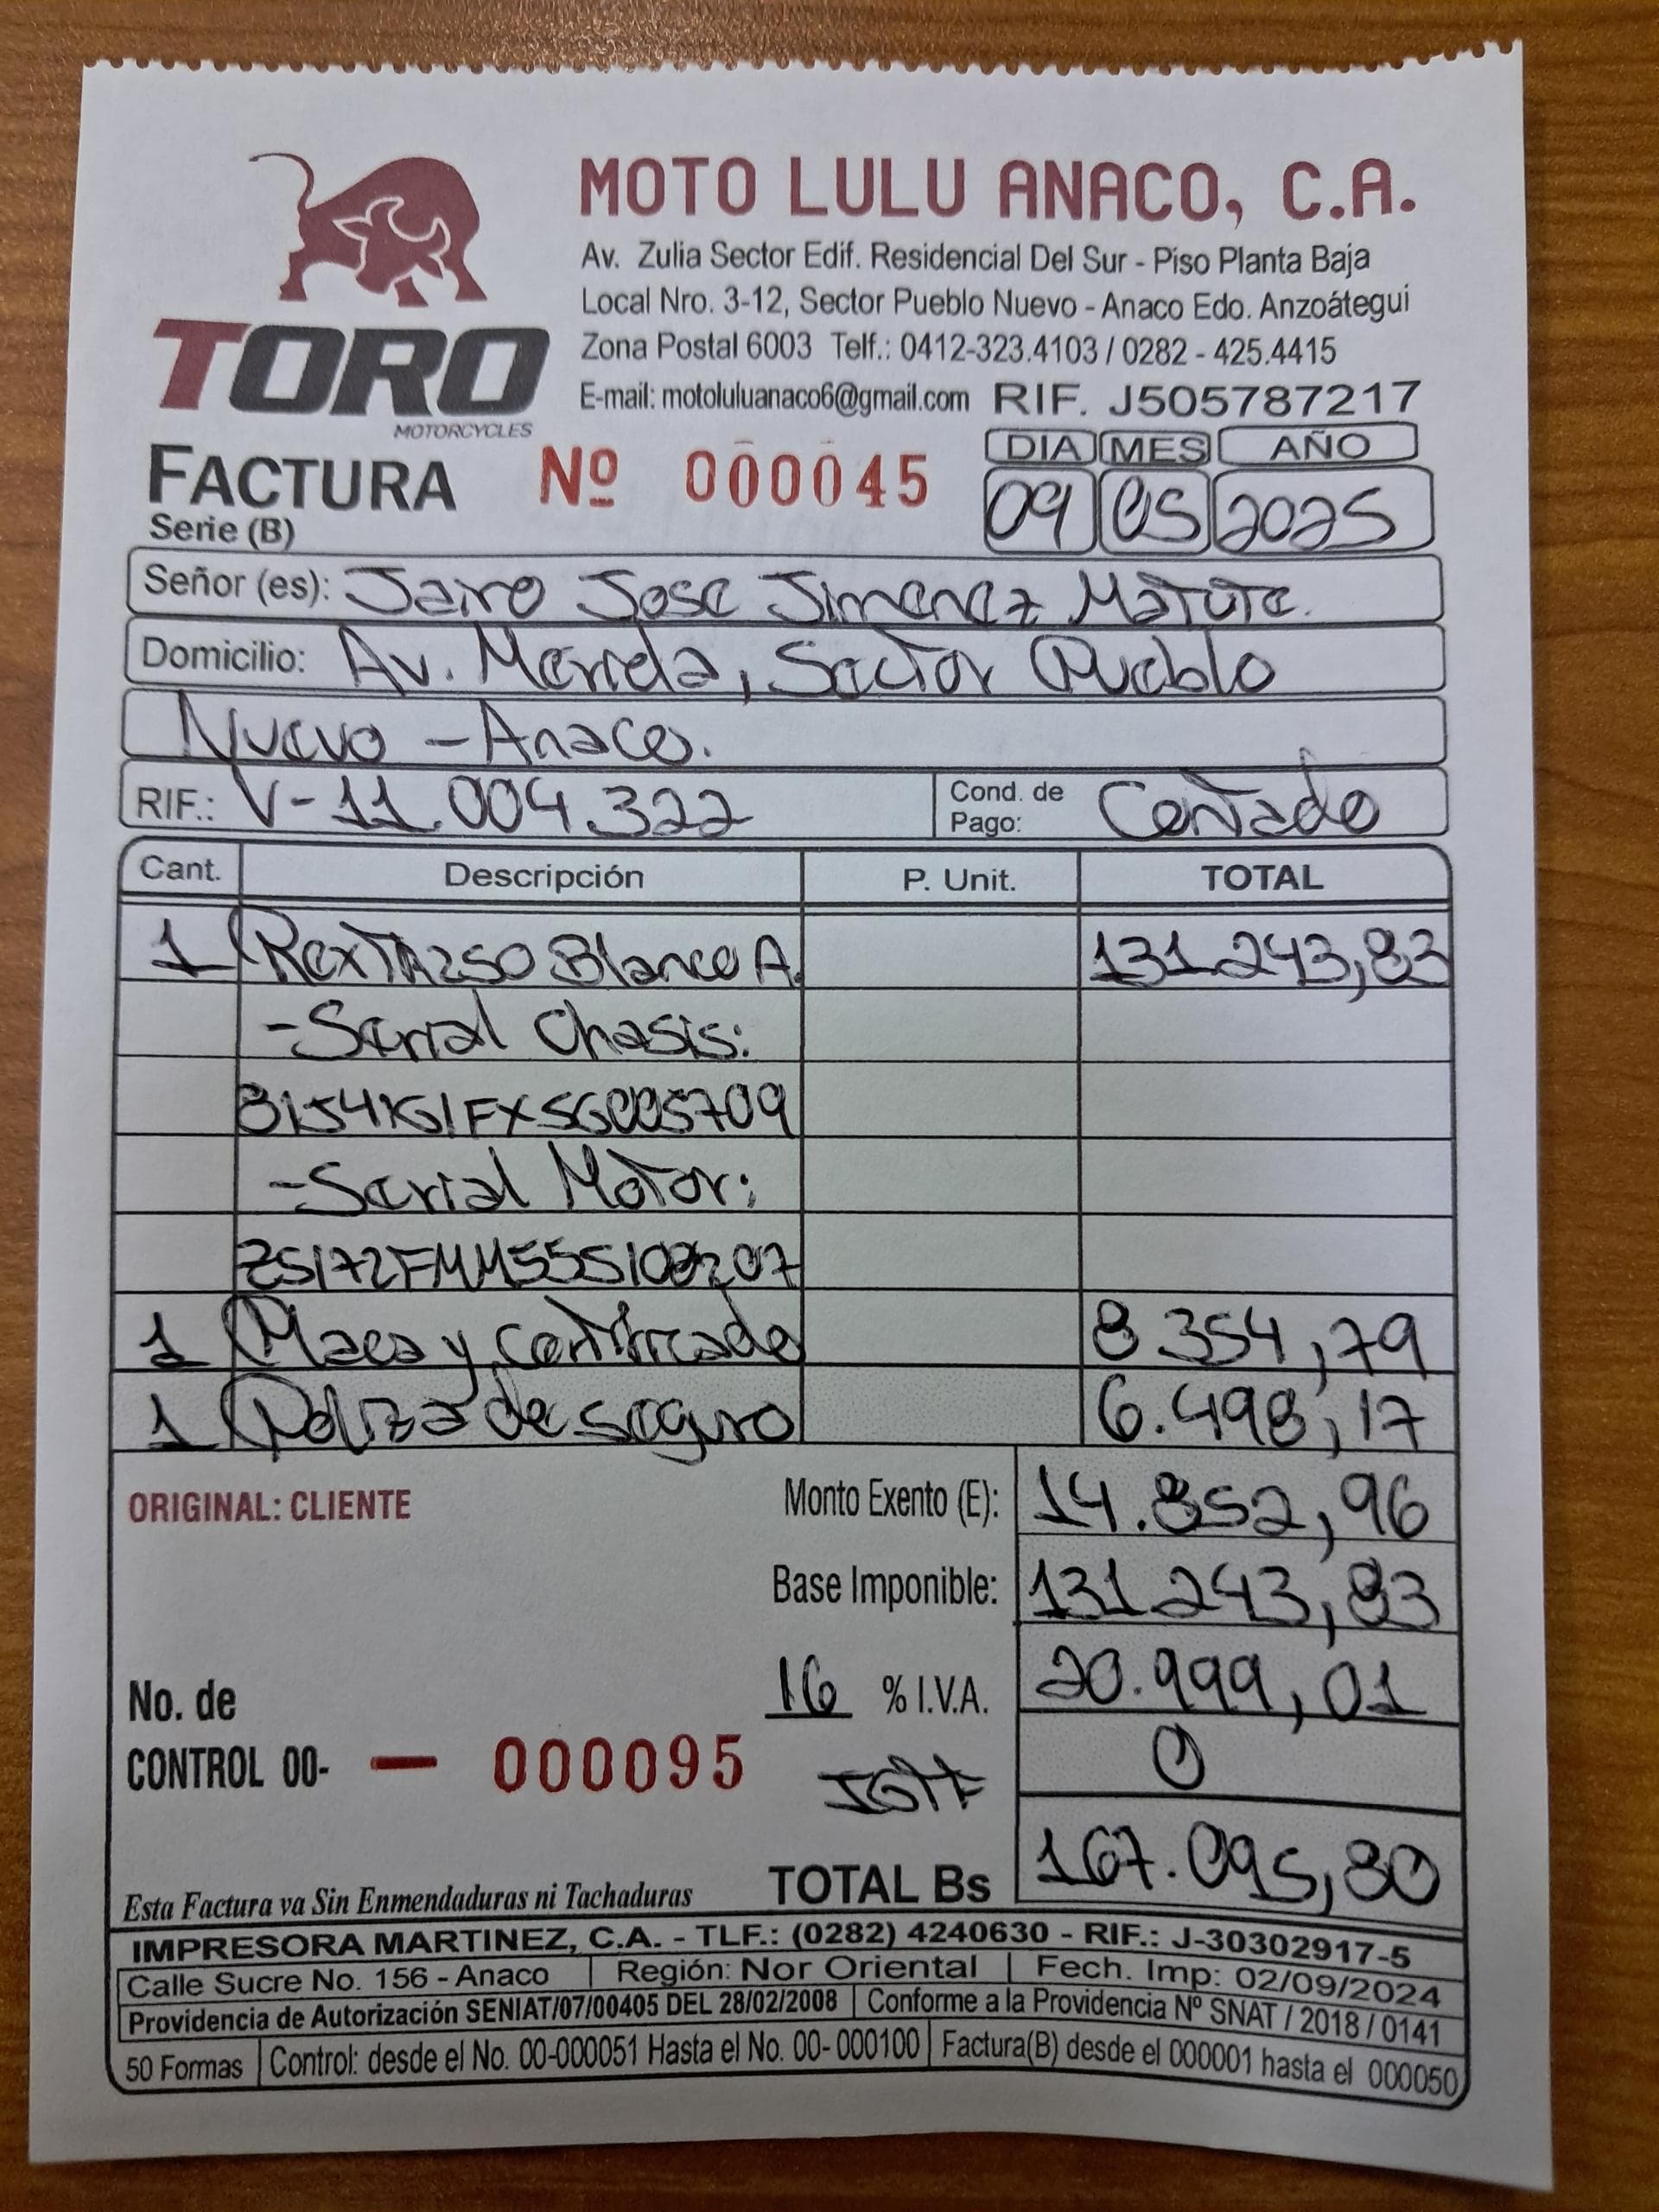 TORO
MOTORCYCLES
MOTO LULU ANACO, C.A.
Av. Zulia Sector Edif. Residencial Del Sur - Piso Planta Baja
Local Nro. 3-12, Sector Pueblo Nuevo - Anaco Edo. Anzoátegui
Zona Postal 6003 Telf.: 0412-323.4103 / 0282 - 425.4415
E-mail: motoluluanaco6@gmail.com RIF. J505787217
FACTURA Nº 000045
Serie (B)
DIA MES AÑO
09 05 2025
Señor (es): Jairo Jose Jimenez Matute.
Domicilio: Av. Merida, Sector Pueblo
Nuevo - Anaco.
RIF.: V-11.004.322 Cond. de Pago: Contado
Cant. Descripción P. Unit. TOTAL
1 Blanco A. 131.243,83
- Serial Chasis:
- Serial Motor:
1 Placa y certificado 8.354,79
1 Poliza de seguro 6.498,17
ORIGINAL: CLIENTE
Monto Exento (E): 14.852,96
Base Imponible: 131.243,83
16 % I.V.A. 20.999,01
No. de
CONTROL 00- — 000095
IGTF 0
Esta Factura va Sin Enmendaduras ni Tachaduras
TOTAL Bs 167.095,80
IMPRESORA MARTINEZ, C.A. - TLF.: (0282) 4240630 - RIF.: J-30302917-5
Calle Sucre No. 156 - Anaco Región: Nor Oriental Fech. Imp: 02/09/2024
Providencia de Autorización SENIAT/07/00405 DEL 28/02/2008 Conforme a la Providencia Nº SNAT / 2018 / 0141
50 Formas Control: desde el No. 00-000051 Hasta el No. 00- 000100 Factura(B) desde el 000001 hasta el 000050